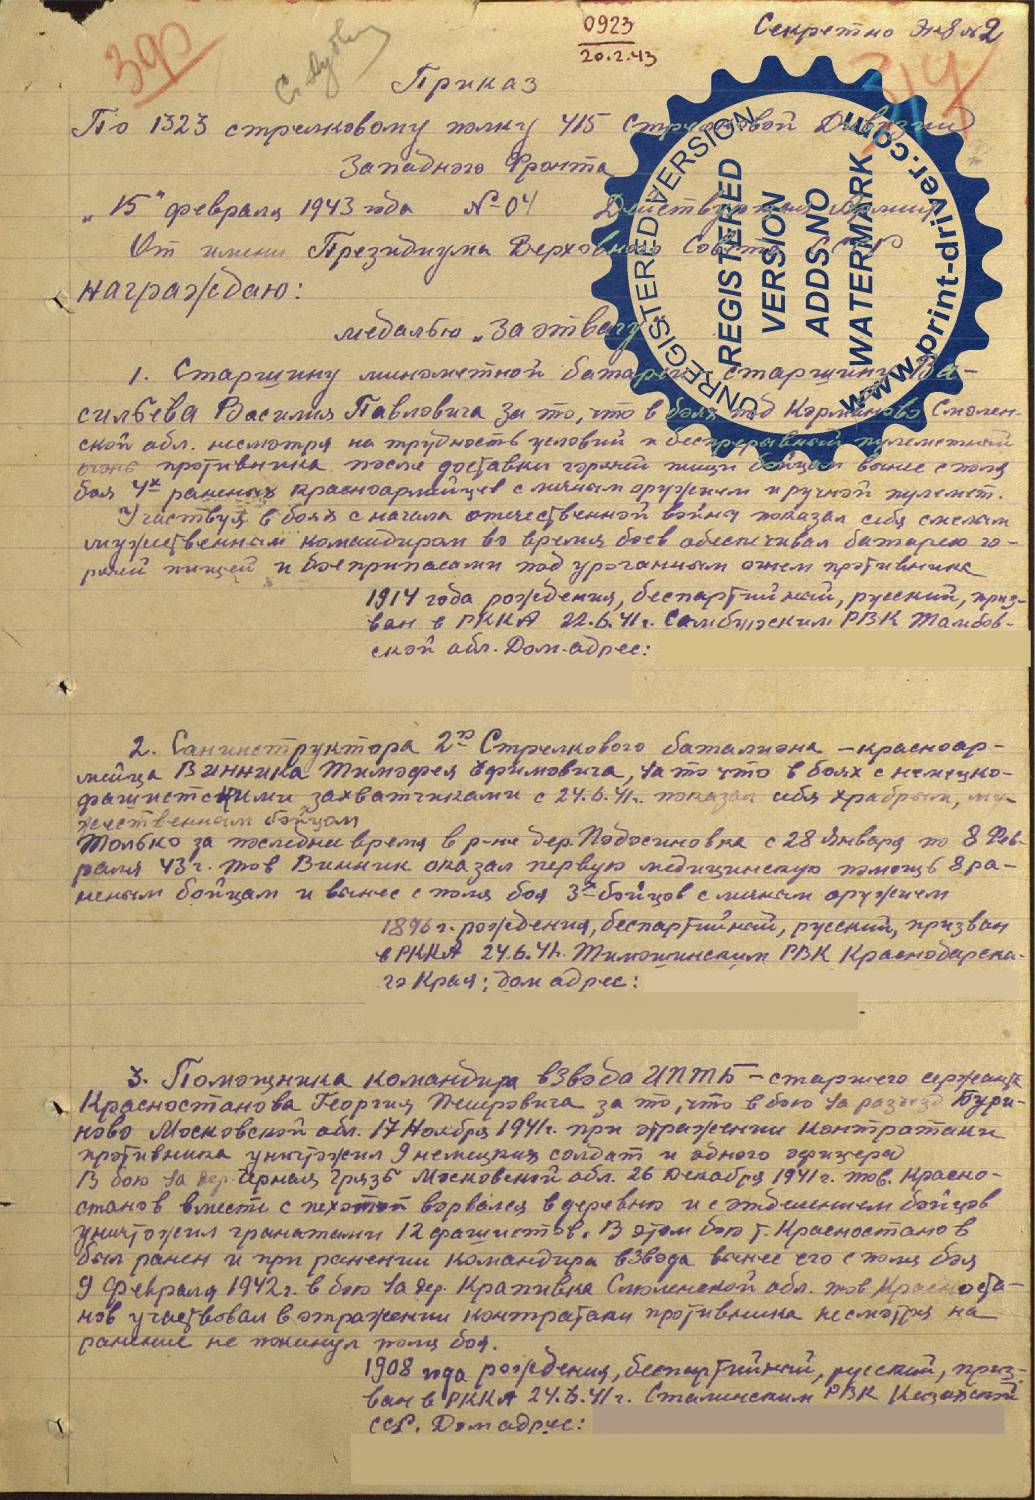 0923
20.2.43
Секретно Экз № 2
Приказ
По 1323 стрелковому полку 415 Стрелковой Дивизии
Западного Фронта
„15“ февраля 1943 года № 04 Действующая Армия
От имени Президиума Верховного Совета СССР
награждаю:
медалью „За отвагу“
UNREGISTERED VERSION
REGISTERED
VERSION
ADDS NO
WATERMARK
www.print-driver.com
1. Старшину минометной батареи старшину Ва-
сильева Василия Павловича за то, что в боях под Кармановo Смолен-
ской обл. несмотря на трудность условий и беспрерывный пулеметный
огонь противника после доставки горячей пищи бойцам вынес с поля
боя 4х раненых красноармейцев с личным оружием и ручной пулемет.
Участвуя в боях с начала отечественной войны показал себя смелым
мужественным командиром во время боев обеспечивал батарею го-
рячей пищей и боеприпасами под ураганным огнем противника
1914 года рождения, беспартийный, русский, приз-
ван в РККА 22.6.41г. Самбурским РВК Тамбов-
ской обл. Дом. адрес:
2. Санинструктора 2го Стрелкового баталиона – красноар-
мейца Винника Тимофея Ефимовича, за то что в боях с немецко-
фашистскими захватчиками с 24.6.41г. показал себя храбрым, му-
жественным бойцом
Только за последнее время в р-не дер. Подосиновка с 28 Января по 8 Фев-
раля 43г. тов Винник оказал первую медицинскую помощь 8 ра-
неным бойцам и вынес с поля боя 3х бойцов с личным оружием
1896 г. рождения, беспартийный, русский, призван
в РККА 24.6.41г. Тимошинским РВК Краснодарско-
го Края; дом адрес:
3. Помощника командира взвода ИПТБ – старшего сержанта
Красностанова Георгия Петровича за то, что в бою за разъезд Бури-
ново Московской обл. 17 Ноября 1941г. при отражении контратаки
противника уничтожил 9 немецких солдат и одного офицера
В бою за дер. Чёрная Грязь Московской обл. 26 Декабря 1941г. тов. Красно-
станов вместе с пехотой ворвался в деревню и с отделением бойцов
уничтожил гранатами 12 фашистов. В этом бою т. Красностанов
был ранен и при ранении командира взвода вынес его с поля боя
9 Февраля 1942г. в бою за дер. Крапивка Смоленской обл. тов Красноста-
нов участвовал в отражении контратаки противника несмотря на
ранение не покинул поля боя.
1908 года рождения, беспартийный, русский, приз-
ван в РККА 24.6.41г. Сталинским РВК Казахской
ССР. Дом адрес: